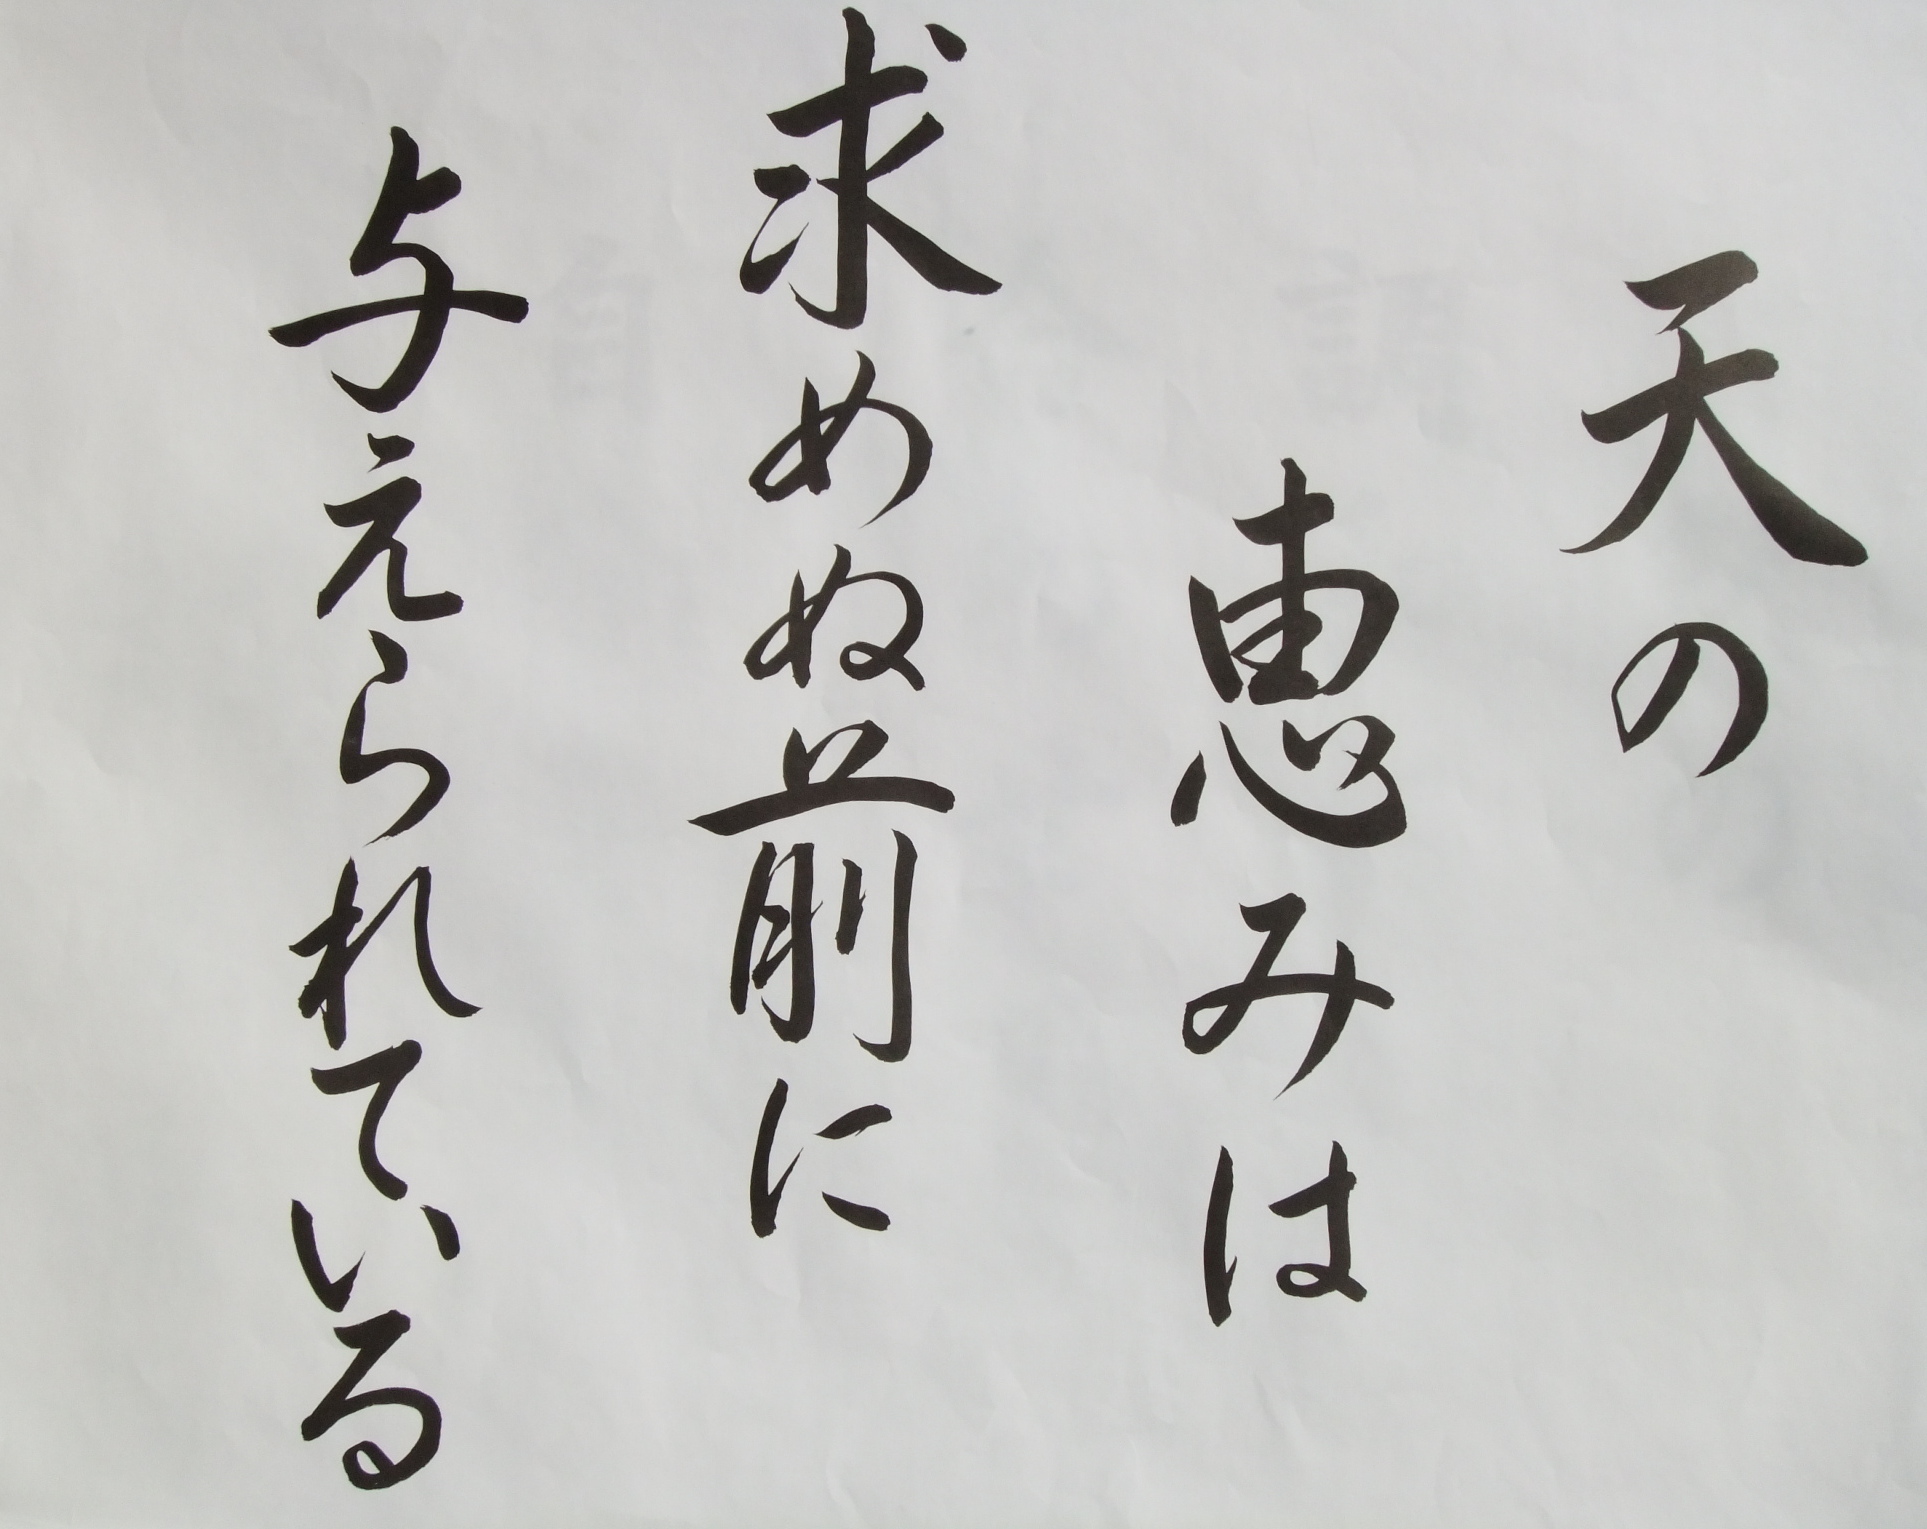 天の
恵みは
求めぬ前に
与えられている